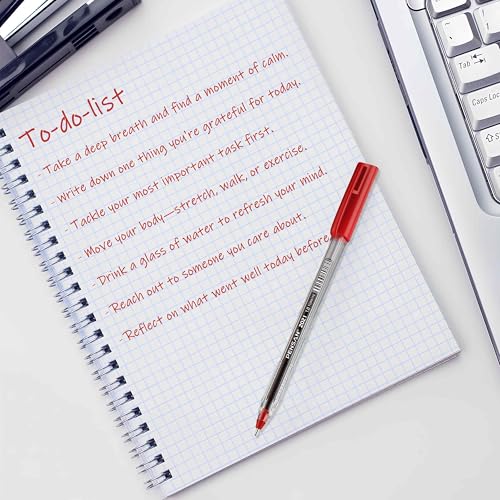 To-do-list
Take a deep breath and find a moment of calm.
-Write down one thing you're grateful for today.
-Tackle your most important task first.
-Move your body—stretch, walk, or exercise.
-Drink a glass of water to refresh your mind.
-Reach out to someone you care about.
-Reflect on what went well today before
PENSAN 2021
Tab
Caps Loc
Shift